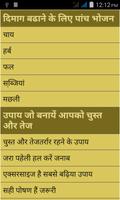 12:12 PM
दिमाग बढाने के लिए पांच भोजन
चाय
हर्ब
फल
सब्जियां
मछली
उपाय जो बनायें आपको चुस्त
और तेज
चुस्त और तेजतर्रार रहने के उपाय
जरा पहेली हल करें जनाब
एक्सरसाइज है सबसे बढ़िया उपाय
सही पोषण है जरूरी